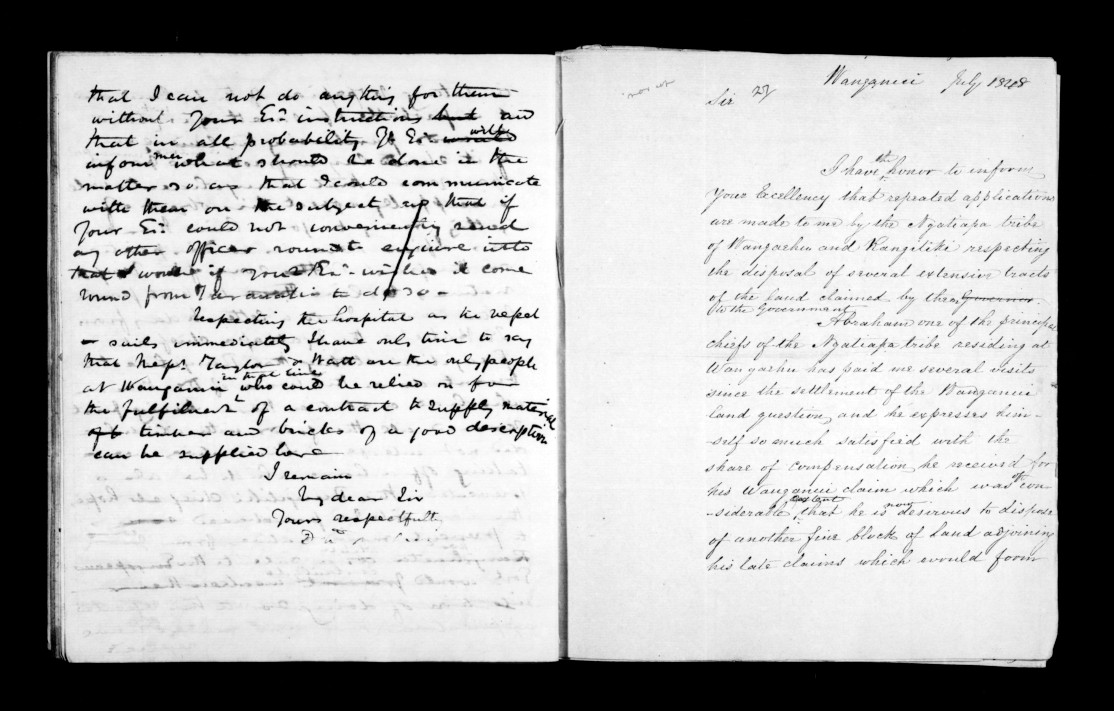 that I can not do anything for them
without Your Ex.y instructions but and
that in all probability Yr Ex.y would will
inform me what should be done in the
matter so as that I could communicate
with them on the subject, and that if
Your Ex.y could not conveniently send
any other officer round to enquire into
that I would if your Ex.y wishes it come
round from to do so
Respecting the hospital as the vessel
sails immediately I have only time to say
that Mess.rs Taylor & Watt are the only people
at Wanganui in that line who could be relied on for
the fulfilment of a contract to supply material
timber and bricks of a good description
can be supplied here
I remain
My dear Sir
Yours respectfully
Wanganui July 1848
Sir 27
I have the honor to inform
Your Excellency that repeated applications
are made to me by the Ngatiapa tribe
of Wangaehu and Rangitiki respecting
the disposal of several extensive tracts
of the land claimed by them Governor.
to the Government
Abraham one of the principal
chiefs of the Ngatiapa tribe residing at
Wangaehu has paid me several visits
since the settlement of the Wanganui
land question, and he expresses him-
self so much satisfied with the
share of compensation he received for
his Wanganui claim which was of con-
-siderable extent that he is now desirous to dispose
of another fine block of Land adjoining
his late claims which would form